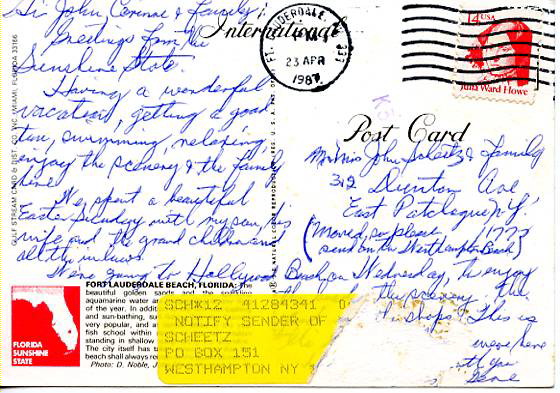 Hi John, Corinne & Family
Greetings from the
Sunshine State.
Having a wonderful
vacation, getting a good
tan, swimming, relaxing,
enjoy the scenery & the family
here.
We spent a beautiful
Easter Sunday with my son, his
wife and the grand children and
all the inlaws.
We're going to Hollywood Beach on Wednesday, to enjoy
the scenery. the
shops! This is
were here
with you
Gene
International
FT. LAUDERDALE, FL 333
PM
23 APR
1987
14 USA
Julia Ward Howe
Post Card
Mr & Mrs John Scheetz & Family
312 Dunton Ave
East Patchogue N.Y.
11772
(Moved, so please
send on to Westhampton Beach)
GULF STREAM CARD & DIST. CO. INC. MIAMI, FLORIDA 33166
FLORIDA
SUNSHINE
STATE
FORT LAUDERDALE BEACH, FLORIDA: The
beautiful golden sands and the
aquamarine water
of the year. In addition
and sun-bathing,
very popular, and
fish school within
standing in shallow
The city itself has
beach shall always
Photo: D. Noble, J
SCHW12 41284341 0
NOTIFY SENDER OF
SCHEETZ
PO BOX 151
WESTHAMPTON NY